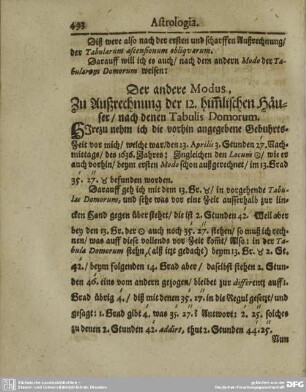 493 Astrologia.
Diß were also nach der ersten und scharffen Außrechnung/
der Tabularum ascensionum obliqvarum.
Darauff will ich es auch/ nach dem andern Modo der Ta-
bularum Domorum weisen:
Der andere Modus,
Zu Außrechnung der 12. himlischen Häu-
ser/ nach denen Tabulis Domorum.
Hierzu nehm ich die vorhin angegebene Gebuhrts-
Zeit vor mich/ welche war/den 23. Aprilis 3. Stunden 27. Nach-
mittags/ des 1636. Jahres; Zugleichen den Locum ☉/ wie er
auch vorhin/ beym ersten Modo schon außgerechnet/ im 13. Grad
35. 27. ♉ befunden worden.
Darauff geh ich mit dem 13. Gr. ♉/ in vorgehende Tabu-
las Domorum, und sehe was vor eine Zeit ausserhalb zur lin-
cken Hand gegen über stehe/ die ist 2. Stunden 42. Weil aber
bey den 13. Gr. der ☉ auch noch 35. 27. stehen/ so muß ich rech-
nen/ was auff diese vollends vor Zeit komt/ Also: in der Ta-
bula Domorum stehn/ (als itzt gedacht) beym 13. Gr. ♉ 2. St.
42./ beym folgenden 14. Grad aber/ daselbst stehen 2. Stun-
den 46. eins vom andern gezogen/ bleibet zur differentz auff 1.
Grad übrig 4./ diß mit denen 35. 27. in die Regul gesetzt/ und
gesagt: 1. Grad gibt 4. was 35. 27.? Antwort: 2. 25. solches
zu denen 2. Stunden 42. addirt, thut 2. Stunden 44. 25.
Nun